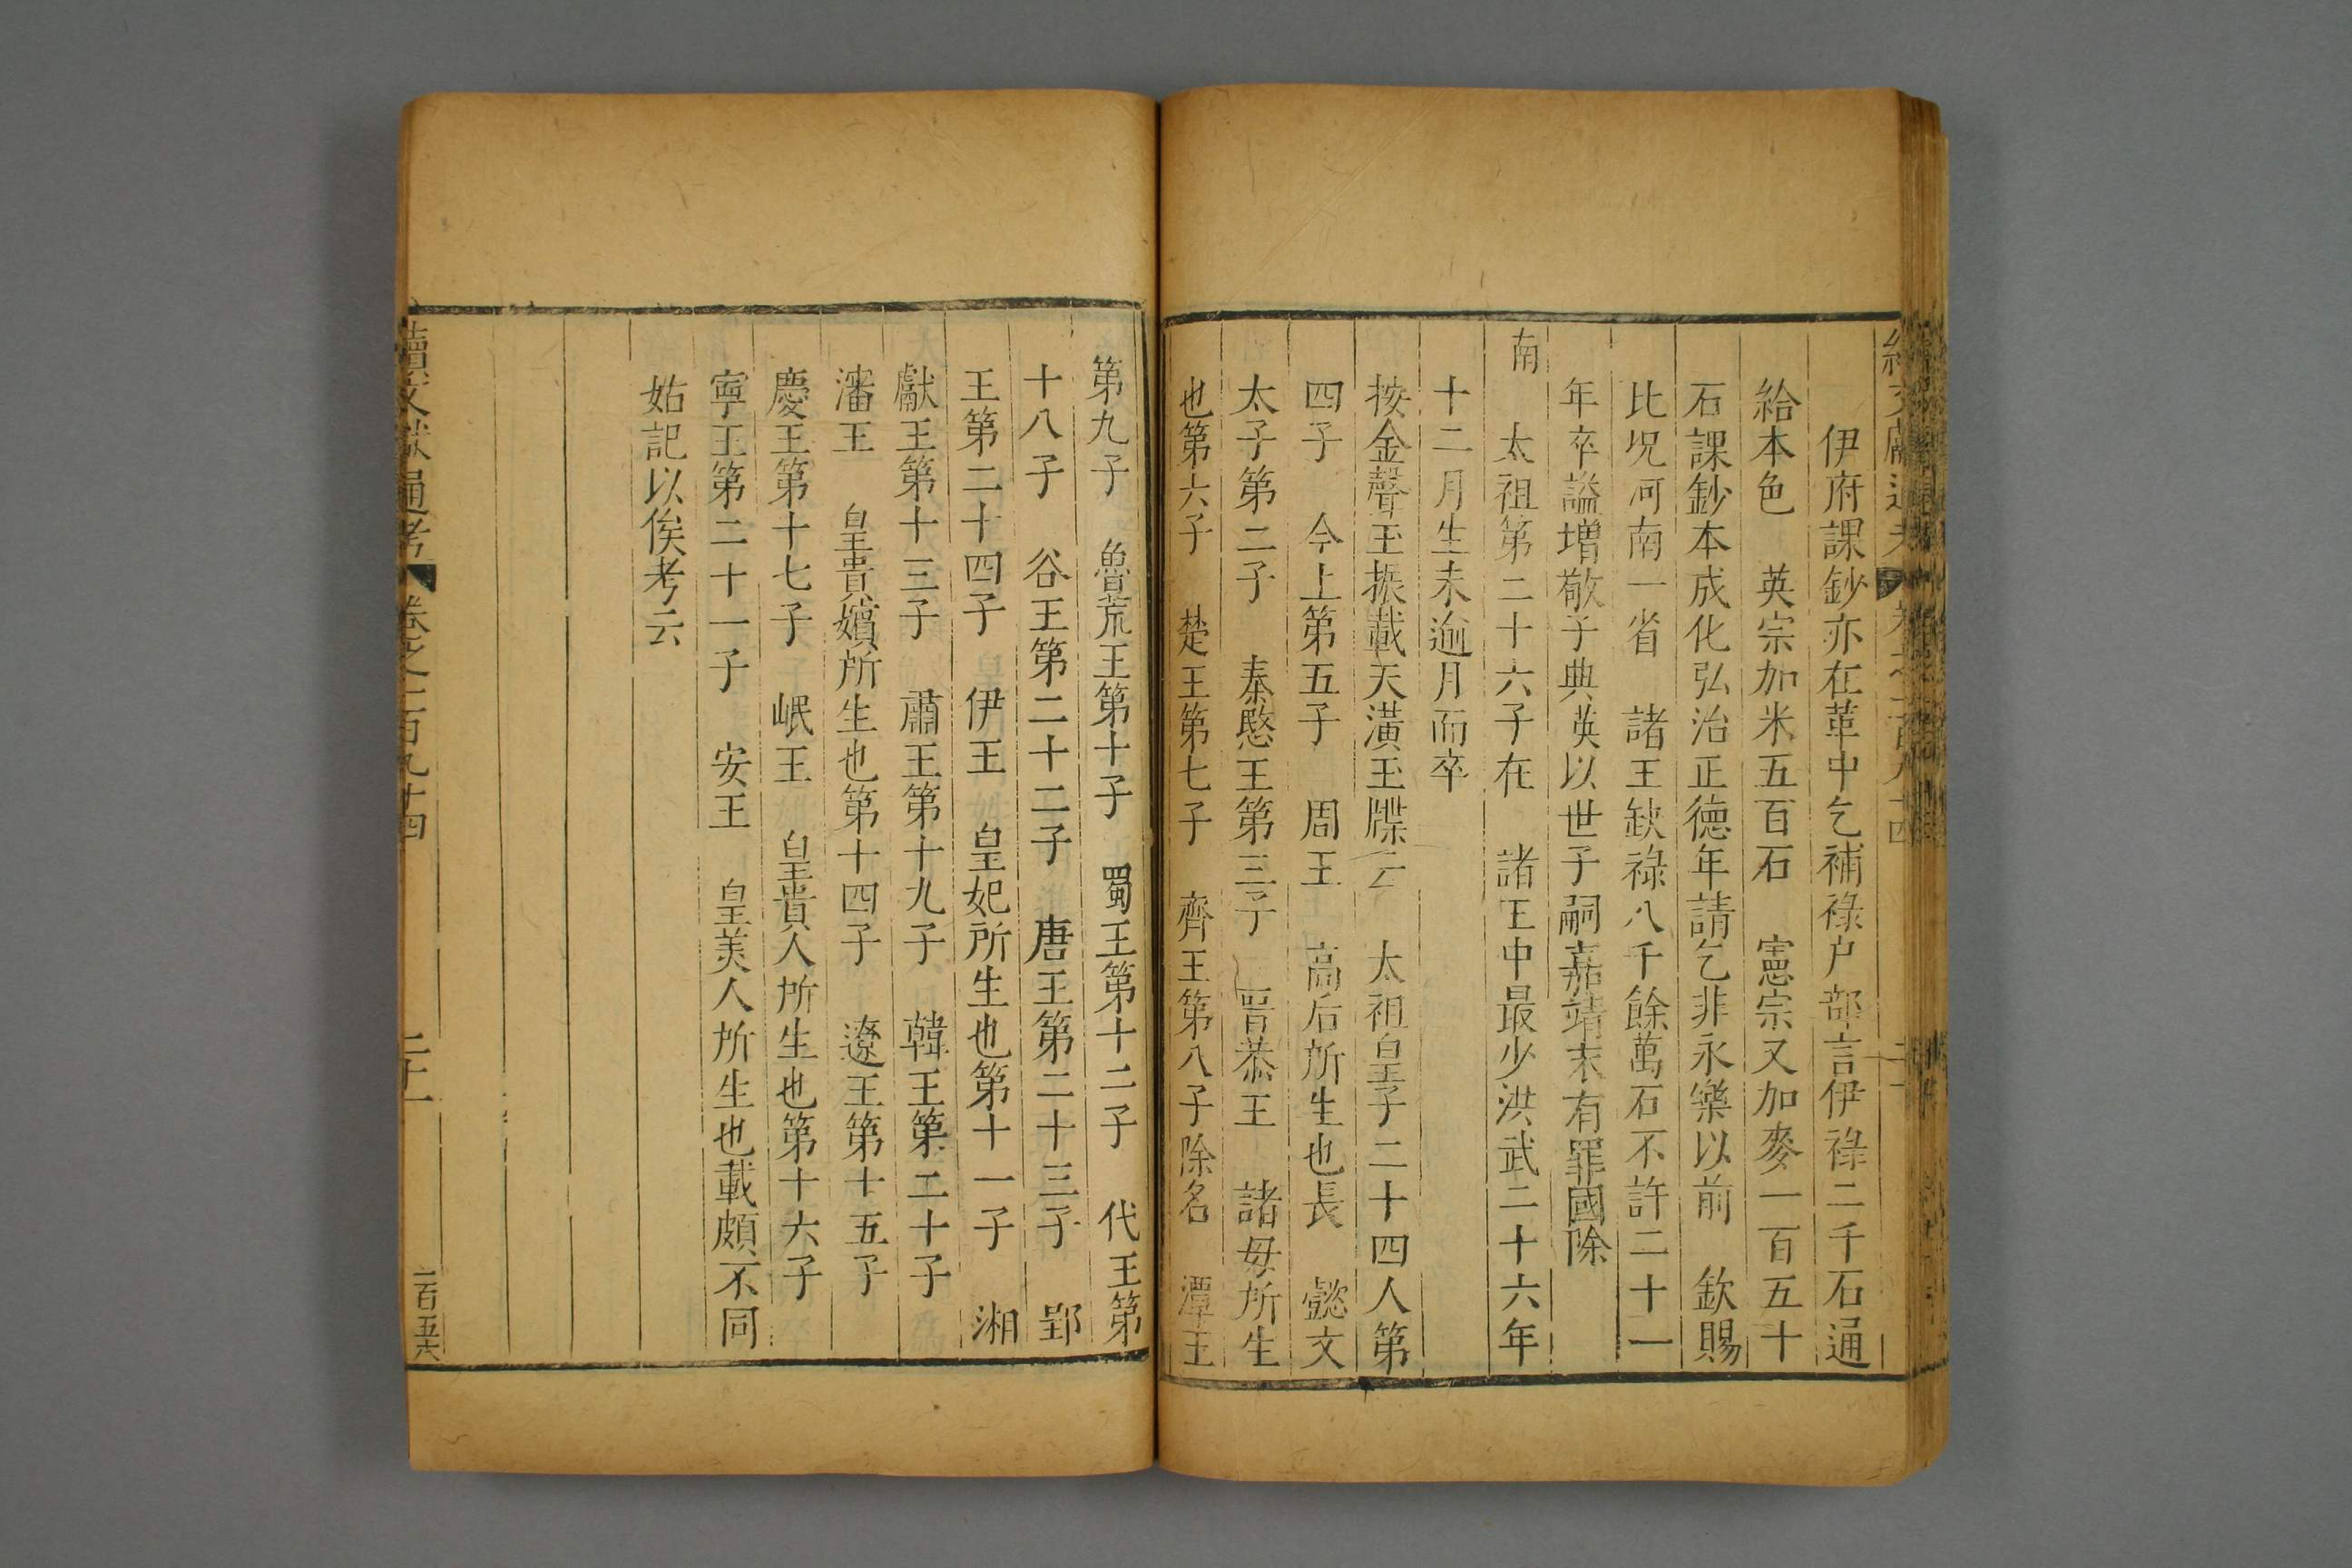 伊府課鈔亦在革中乞補祿户部言伊祿二千石通
給本色 英宗加米五百石 憲宗又加麥一百五十
石課鈔本成化弘治正德年請乞非永樂以前 欽賜
比况河南一省 諸王缺祿八千餘萬石不許二十一
年卒謚增敬子典英以世子嗣嘉靖末有罪國除
南 太祖第二十六子在 諸王中最少洪武二十六年
十二月生未逾月而卒
按金聲玉振載天潢玉牒云 太祖皇子二十四人第
四子 今上第五子 周王 高后所生也長 懿文
太子第二子 秦愍王第三子 晋恭王 諸母所生
也第六子 楚王第七子 齊王第八子除名 潭王
第九子 魯荒王第十子 蜀王第十二子 代王第
十八子 谷王第二十二子 唐王第二十三子 郢
王第二十四子 伊王 皇妃所生也第十一子 湘
獻王第十三子 肅王第十九子 韓王第二十子
瀋王 皇貴嬪所生也第十四子 遼王第十五子
慶王第十七子 岷王 皇貴人所生也第十六子
寧王第二十一子 安王 皇美人所生也載頗不同
姑記以俟考云
續文獻通考 卷之二百九十四 二十一 一百五六